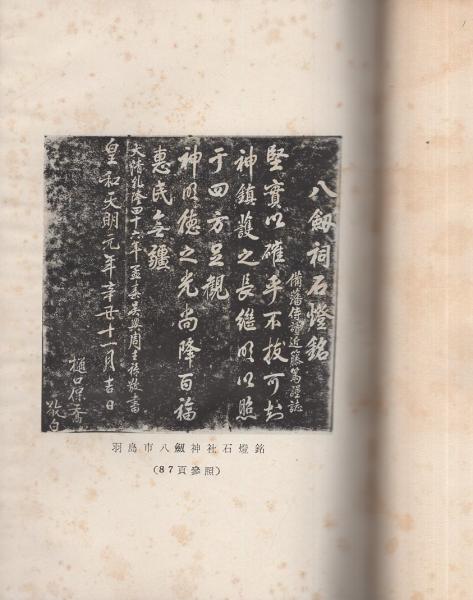 八劔祠石燈銘
備藩侍讀近藤篤謹誌
堅實以確乎不拔可封
神鎮護之長繼明以照
于四方足觀
神明德之光尚降百福
惠民無疆
大清乾隆四十六年孟春吳興周壬禄敬書
皇和天明元年辛丑十一月吉日
樋口保喬
敬白
羽島市八劔神社石燈銘
(87頁參照)